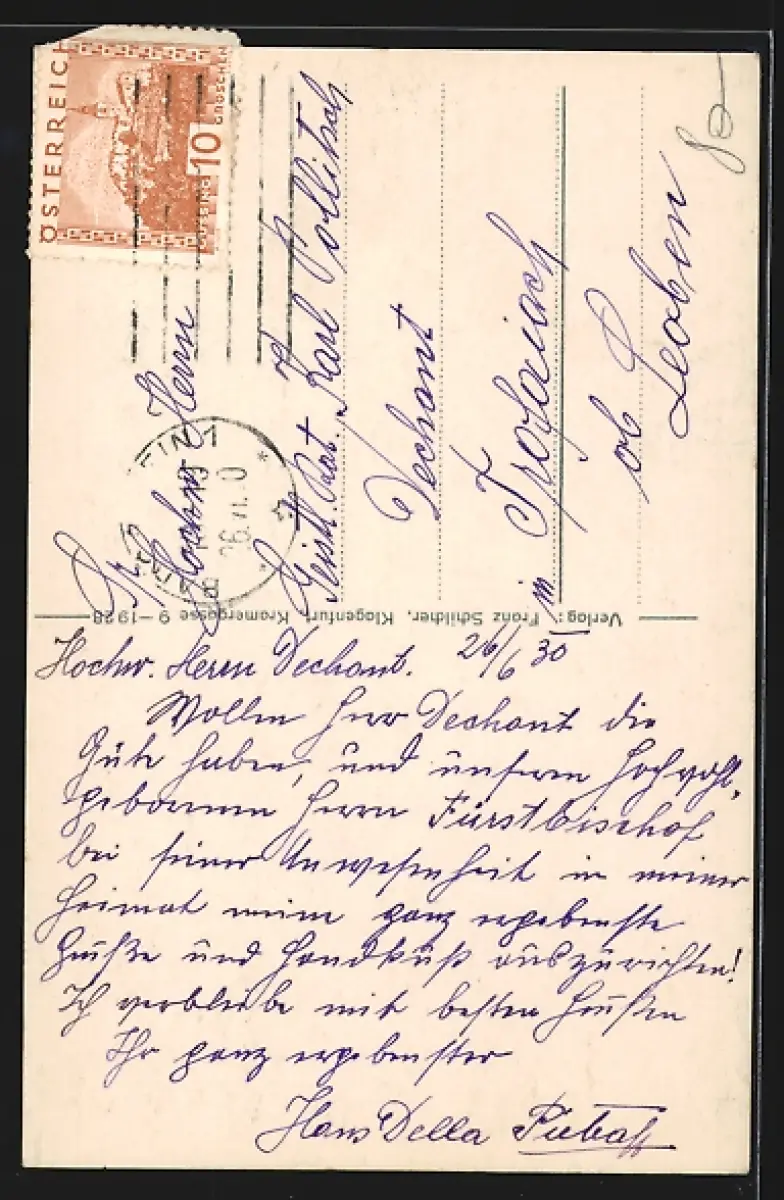 ÖSTERREICH
10
GROSCHEN
GÜSSING
Sr. Hochw. Herrn
Geistl. Rat. Karl Pollitsch
Dechant
in Trofaiach
ob Leoben
Verlag: Franz Schilcher, Klagenfurt, Kramergasse 9 — 1928
26/6 30
Hochw. Herrn Dechant.
Wollen Herr Dechant die
Güte haben, und unseren Hochwohl-
geborenen Herrn Fürstbischof
bei seiner Anwesenheit in meiner
Heimat meine ganz ergebenste
Grüße und Handkuß auszurichten!
Ich verbleibe mit besten Grüßen
Ihr ganz ergebenster
Hans Della